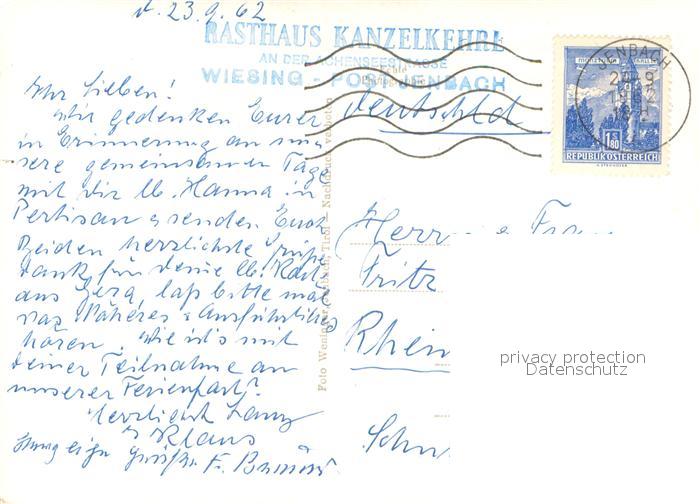 d. 23.9.62
RASTHAUS KANZELKEHRE
AN DER ACHENSEESTRASSE
WIESING - POST JENBACH
Ihr Lieben!
Wir gedenken Eurer
in Erinnerung an un-
sere gemeinsamen Tage
mit Dir lb. Hanna in
Pertisau & senden Euch
beiden herzlichste Grüße
Dank für Deine lb. Karte
aus Jera, laß bitte mal
was Näheres & Ausführliches
hören. Wie ist's mit
Deiner Teilnahme an
unserer Ferienfart?
Herzlichst
& Klaus
Grüße Fr.
Foto Weninger, Jenbach, Tirol — Nachdruck verboten
Deutschld
JENBACH
1.80
REPUBLIK ÖSTERREICH
Herrn u Frau
Fritz
Rhein
privacy protection
Datenschutz